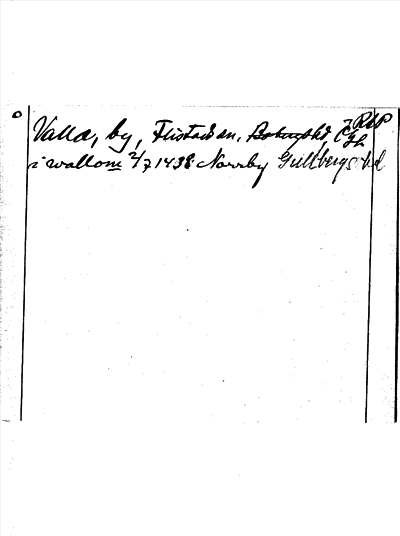 Valla, by, Flistad sn, Bobergs hd, ÖGL RAP
i wallom 2/7 1438 Norrby Gullbergs hd